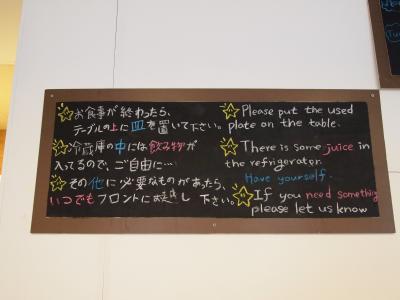 お食事が終わったら、
テーブルの上に皿を置いて下さい。
冷蔵庫の中には飲み物が
入ってるので、ご自由に…
その他に必要なものがあったら、
いつでもフロントにお越し下さい。
Please put the used
plate on the table.
There is some juice in
the refrigerator.
Have yourself.
If you need something
please let us know